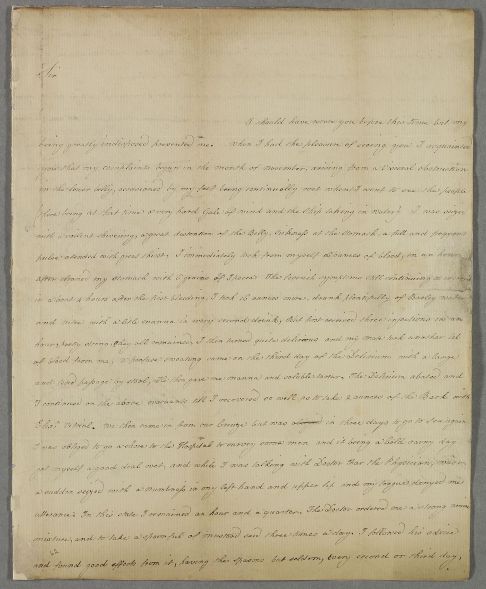 Sir
I should have wrote you before this Time but my
being greatly indisposed prevented me. When I had the pleasure of seeing you I acquainted
you that my complaints began in the month of November, arising from a Visceral obstruction
in the lower belly, occasioned by my feet being continually wet when I went to see the people
there being at that time a very hard Gale of wind and the Ship taking in water. I was seized
with a violent shivering, a great distention of the Belly, sickness at the stomach a full and
pulse attended with great thirst. I immediately took from myself 16 ounces of blood, in an hour
after cleaned my stomach with grains of Ipecac. The feverish symptoms still continuing
in about 4 hours after the first bleeding. I had 16 ounces more, drank plentifully of Barley water
and nitre with a little manna in every second drink, But first received three injections in an
hour, pretty strong they all remained, I then turned quite delirious and my mate took another lb
of blood from me, a profuse sweating came on the third day of the Delirium with a large
and free passage by stool, He then gave me manna and soluble tartar. The Delirium abated and
I continued on the above medicaments till I recovered so well as to take 2 ounces of the Bark with
Elix. Vitriol. We then came in from our cruize but was in three days to go to Sea again
I was obliged to go ashore to the Hospital to survey some men and it being a cold rainy day
got myself a good deal wet, and while I was talking with Doctor the Physician, was on
a sudden seized with a numbness in my left hand and upper lip and my tongue denyed me
utterance. In this state I remained an hour and a quarter. The Doctor ordered me a strong
mixture, and to take a spoonful of mustard seed three times a day. I followed his advice
and found good effects from it, having the spasms but seldom, every second or third day,